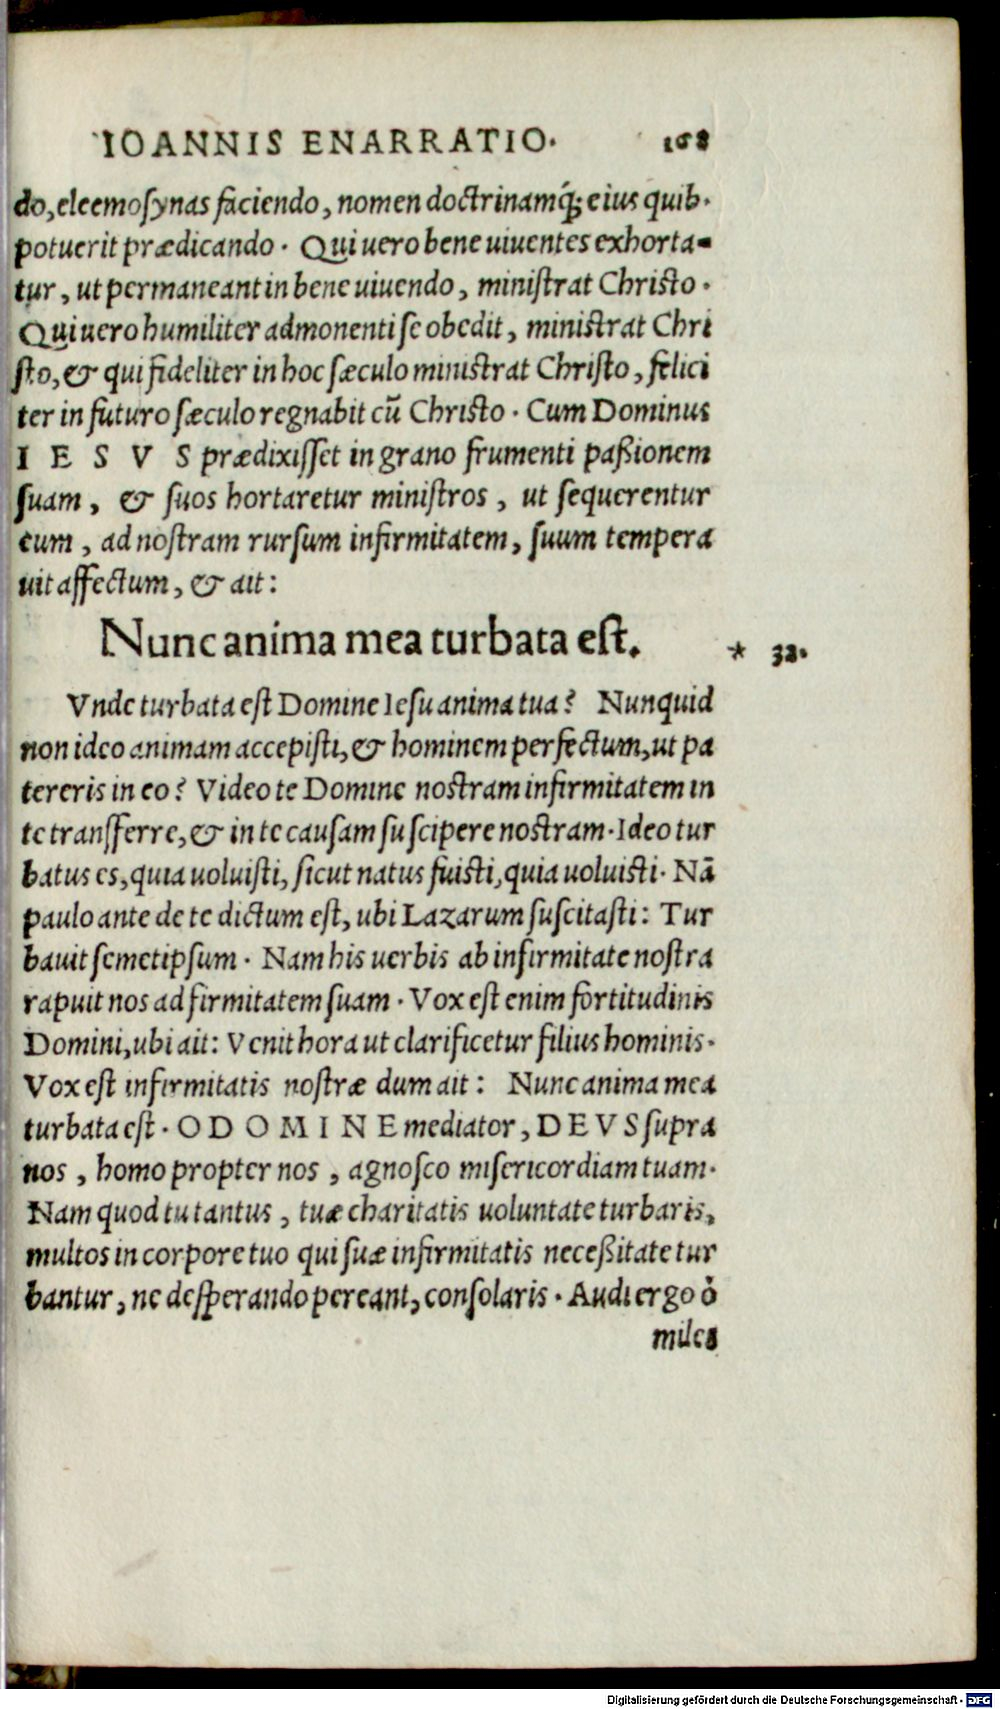 IOANNIS ENARRATIO. 168
do, eleemosynas faciendo, nomen doctrinamq́; eius quib.
potuerit prædicando. Qui uero bene uiuentes exhorta-
tur, ut permaneant in bene uiuendo, ministrat Christo.
Qui uero humiliter admonenti se obedit, ministrat Chri
sto, & qui fideliter in hoc sæculo ministrat Christo, felici
ter in futuro sæculo regnabit cū Christo. Cum Dominus
I E S V S prædixisset in grano frumenti paßionem
suam, & suos hortaretur ministros, ut sequerentur
eum, ad nostram rursum infirmitatem, suum tempera
uit affectum, & ait:
Nunc anima mea turbata est. * 32.
Vnde turbata est Domine Iesu anima tua? Nunquid
non ideo animam accepisti, & hominem perfectum, ut pa
tereris in eo? Video te Domine nostram infirmitatem in
te transferre, & in te causam suscipere nostram. Ideo tur
batus es, quia uoluisti, sicut natus fuisti, quia uoluisti. Nā
paulo ante de te dictum est, ubi Lazarum suscitasti: Tur
bauit semetipsum. Nam his uerbis ab infirmitate nostra
rapuit nos ad firmitatem suam. Vox est enim fortitudinis
Domini, ubi ait: Venit hora ut clarificetur filius hominis.
Vox est infirmitatis nostræ dum ait: Nunc anima mea
turbata est. O D O M I N E mediator, D E V S supra
nos, homo propter nos, agnosco misericordiam tuam.
Nam quod tu tantus, tuæ charitatis uoluntate turbaris,
multos in corpore tuo qui suæ infirmitatis neceßitate tur
bantur, ne desperando pereant, consolaris. Audi ergo ò
miles
Digitalisierung gefördert durch die Deutsche Forschungsgemeinschaft - DFG